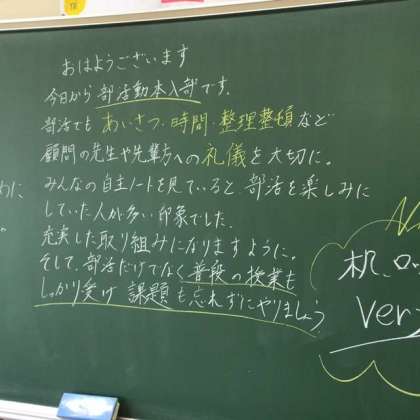 おはようございます
今日から部活動本入部です。
部活でも あいさつ・時間・整理整頓など
顧問の先生や先輩方への礼儀を大切に。
みんなの自主ノートを見ていると、部活を楽しみに
していた人が多い印象でした。
充実した取り組みになりますように。
そして、部活だけでなく普段の授業も
しっかり受け 課題も忘れずにやりましょう
机、ロッ
ver